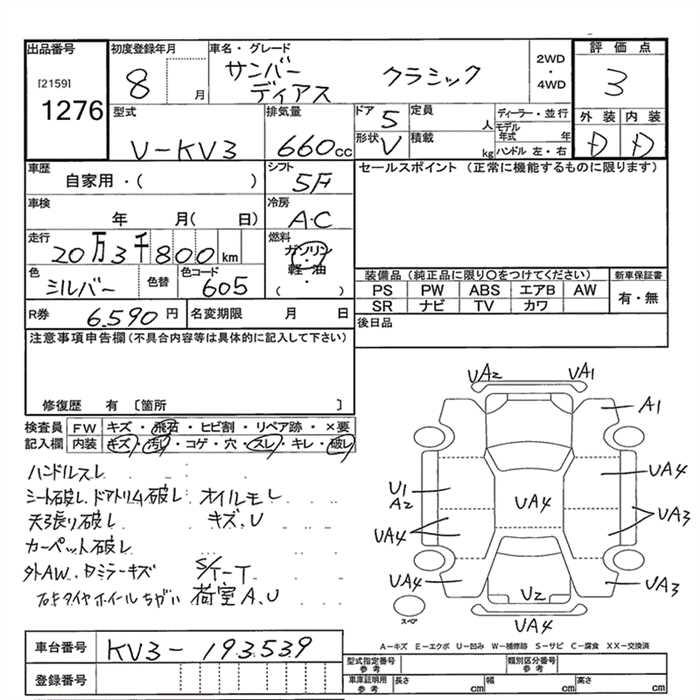 出品番号 初度登録年月 車名・グレード 2WD・4WD 評価点
[2159] 1276 8 月 サンバー ディアス クラシック 3
型式 排気量 ドア 5 定員 人 ディーラー・並行 外装 内装
V-KV3 660cc 形状 V 積載 kg モデル年式 年 ハンドル 左・右 D D
車歴 シフト セールスポイント (正常に機能するものに限ります)
自家用・( ) 5F
車検 冷房
年 月( 日) A・C
走行 燃料
20万3千800km ガソリン・軽・油 ( )
色 色替 色コード 装備品 (純正品に限り○をつけてください) 新車保証書
シルバー 605 PS PW ABS エアB AW 有・無
SR ナビ TV カワ
R券 6,590円 名変期限 月 日 後日品
注意事項申告欄 (不具合内容等は具体的に記入して下さい)
修復歴 有 〔箇所 〕
検査員記入欄 FW キズ・飛石・ヒビ割・リペア跡・×要
内装 キズ・汚れ・コゲ・穴・スレ・キレ・破レ
ハンドルスレ
シート破レ ドアトリム破レ オイルモレ
天張り破レ キズ、U
カーペット破レ
外AW、 ミラーキズ S/T-T
タイヤホイールちがい 荷室A、U
UA2 UA1
A1
U1 A2 UA4 UA4
UA4 UA3
UA4 U2 UA3
スペア UA4
A-キズ E-エクボ U-凹み W-補修跡 S-サビ C-腐食 XX-交換済
車台番号 KV3-193539
登録番号
型式指定番号 参考 類別区分番号 参考
車庫証明用 参考 長さ cm 幅 cm 高さ cm